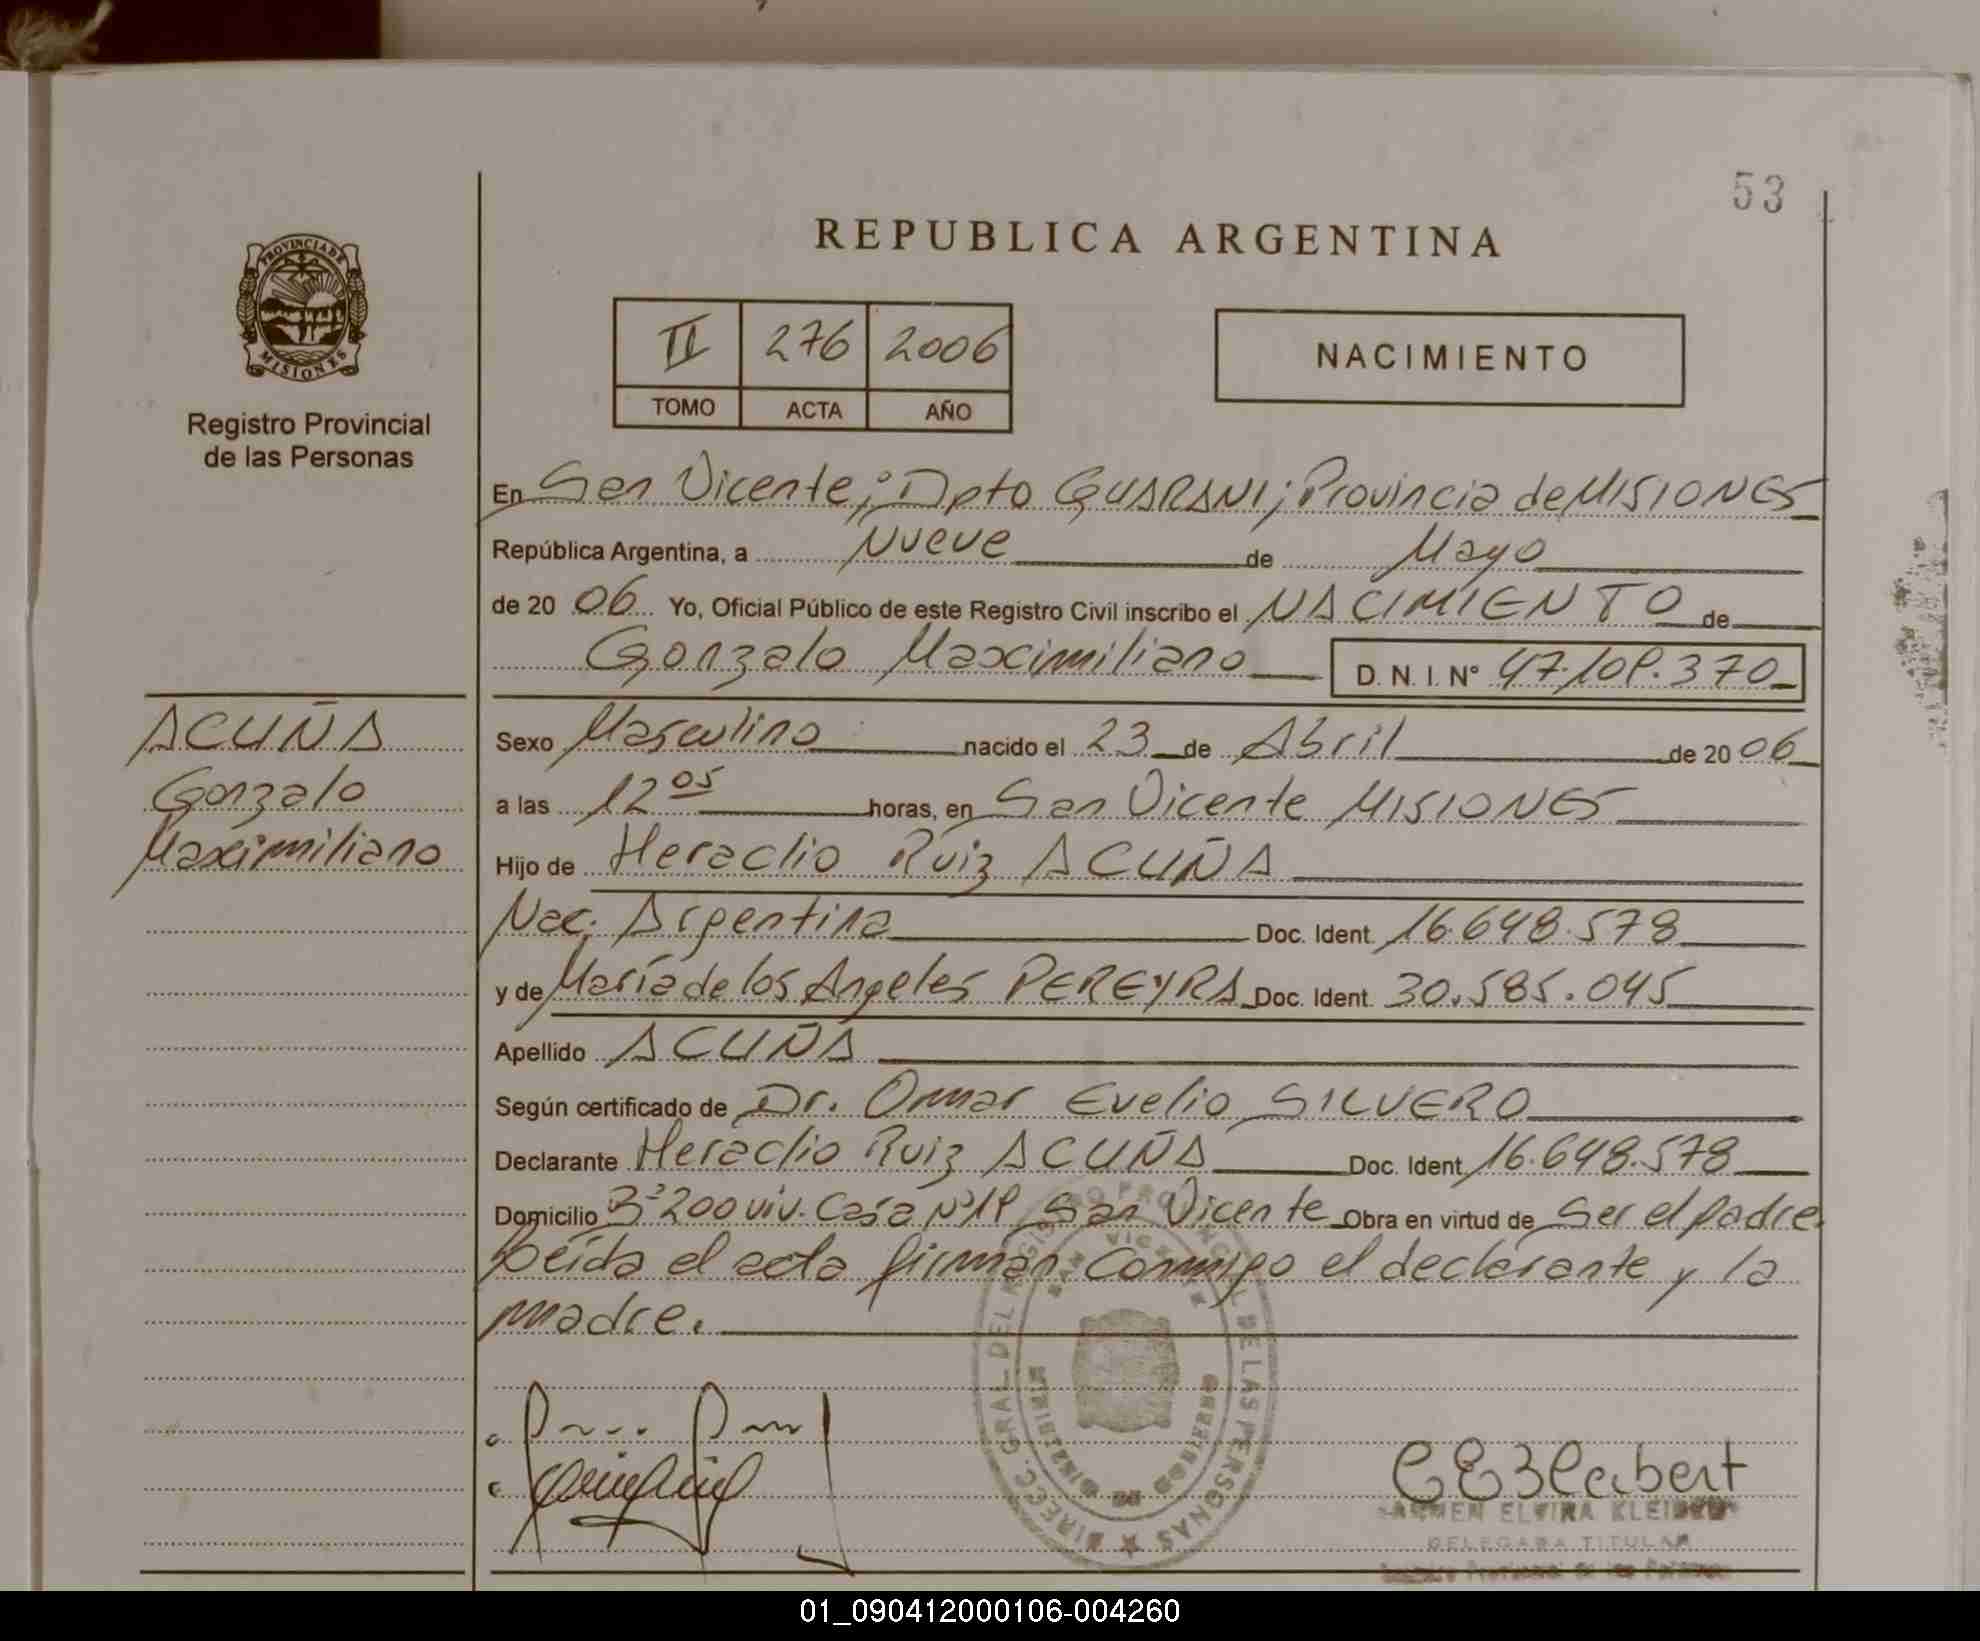 53
REPUBLICA ARGENTINA
PROVINCIA DE
MISIONES
Registro Provincial
de las Personas
II 276 2006
TOMO ACTA AÑO
NACIMIENTO
En San Vicente; Dpto GUARANI; Provincia de MISIONES
República Argentina, a Nueve de Mayo
de 20 06 Yo, Oficial Público de este Registro Civil inscribo el NACIMIENTO de
Gonzalo Maximiliano D. N. I. N° 47.109.370
ACUÑA
Gonzalo
Maximiliano
Sexo Masculino nacido el 23 de Abril de 20 06
a las 12 05 horas, en San Vicente MISIONES
Hijo de Heraclio Ruiz ACUÑA
Nac. Argentina Doc. Ident. 16.648.578
y de María de los Angeles PEREYRA Doc. Ident. 30.585.045
Apellido ACUÑA
Según certificado de Dr. Omar Evelio SILVERO
Declarante Heraclio Ruiz ACUÑA Doc. Ident. 16.648.578
Domicilio B° 200 viv. Casa N°19 San Vicente Obra en virtud de Ser el padre.
Leída el acta firman conmigo el declarante y la
madre.
DIRECC. GRAL. DEL REGISTRO PROVINCIAL DE LAS PERSONAS
SAN VICENTE
MINISTERIO DE GOBIERNO
CARMEN ELVIRA KLEIBERT
DELEGADA TITULAR
Registro Provincial de las Personas
01_090412000106-004260